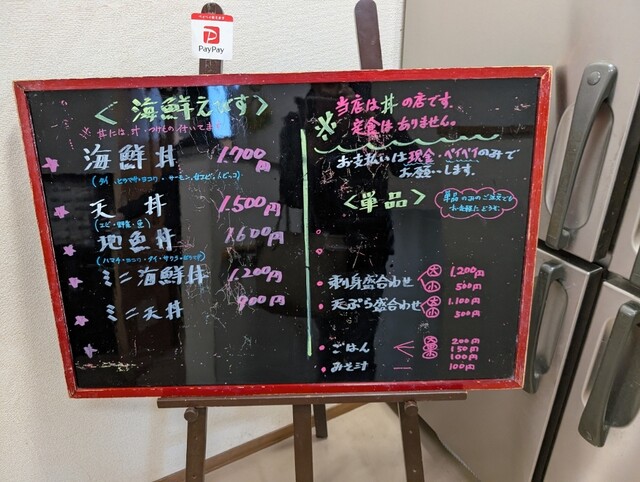 PayPay
<海鮮えびす>
※丼には、汁・つけもの付いてます。
海鮮丼 1.700円
天丼 1.500円
(エビ・野菜・魚)
地魚丼 1.600円
ミニ海鮮丼 1.200円
ミニ天丼 900円
※当店は丼の店です。
定食はありません。
お支払いは現金・ペイペイのみで
お願いします。
<単品>
単品のみのご注文でも
刺身盛合わせ 大 1.200円
小 500円
天ぷら盛合わせ 大 1.100円
小 500円
ごはん 大 200円
中 150円
小 100円
みそ汁 100円